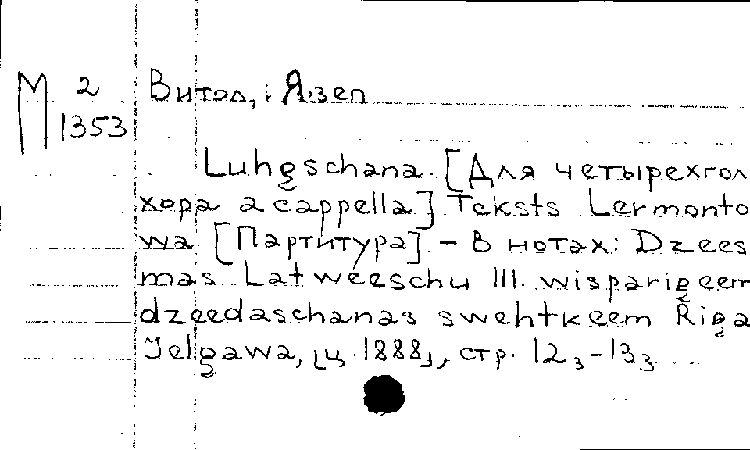 М 2
1353
Витол, Язеп
Luhgschana. [Для четырехгол
хора a cappella] Teksts Lermonto
wa [Партитура] – В нотах: Dzees
mas Latweeschu III. wisparigeem
dzeedaschanas swehtkeem Riga
Jelgawa, [ц. 1888], стр. 12₃–13₃